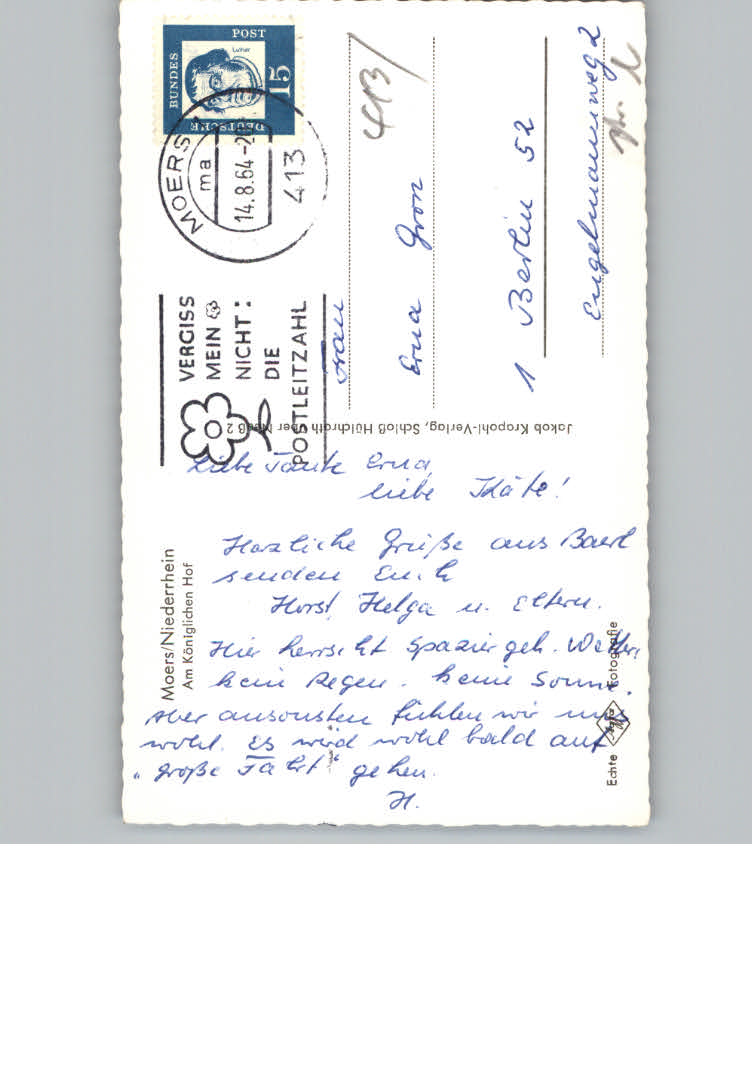 POST
Luther
BUNDES
15
DEUTSCHE
MOERS
ma
14.8.64-2
413
VERGISS
MEIN
NICHT:
DIE
POSTLEITZAHL
413/
Frau
Erna Gron
1 Berlin 52
Engelmannweg 2
Jakob Krapohl-Verlag, Schloß Hülchrath über Neuß 2
Moers/Niederrhein
Am Königlichen Hof
Liebe Tante Erna,
liebe Käte!
Herzliche Grüße aus Baerl
senden Euch
Horst, Helga u. Eltern.
Hier herrscht Spaziergeh. Wetter,
kein Regen. keine Sonne.
Aber ansonsten fühlen wir uns
wohl. Es wird wohl bald auf
"große Fahrt" gehen.
H.
Echte Agfa Fotografie